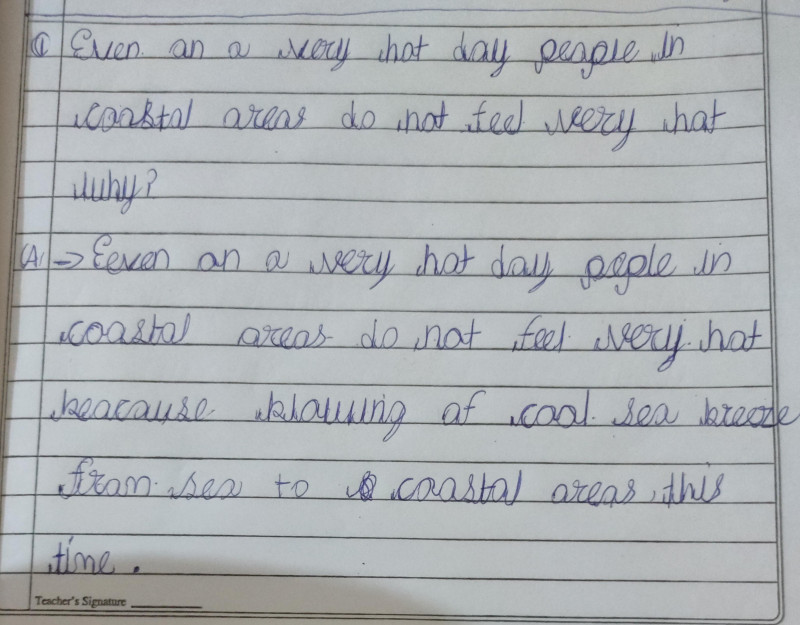 Q Even on a very hot day people in
coastal areas do not feel very hot
why?
A → Eeven on a very hot day pople in
coastal areas do not feel very hot
beacause blowing of cool sea breeze
from sea to coastal areas this
time.
Teacher's Signature